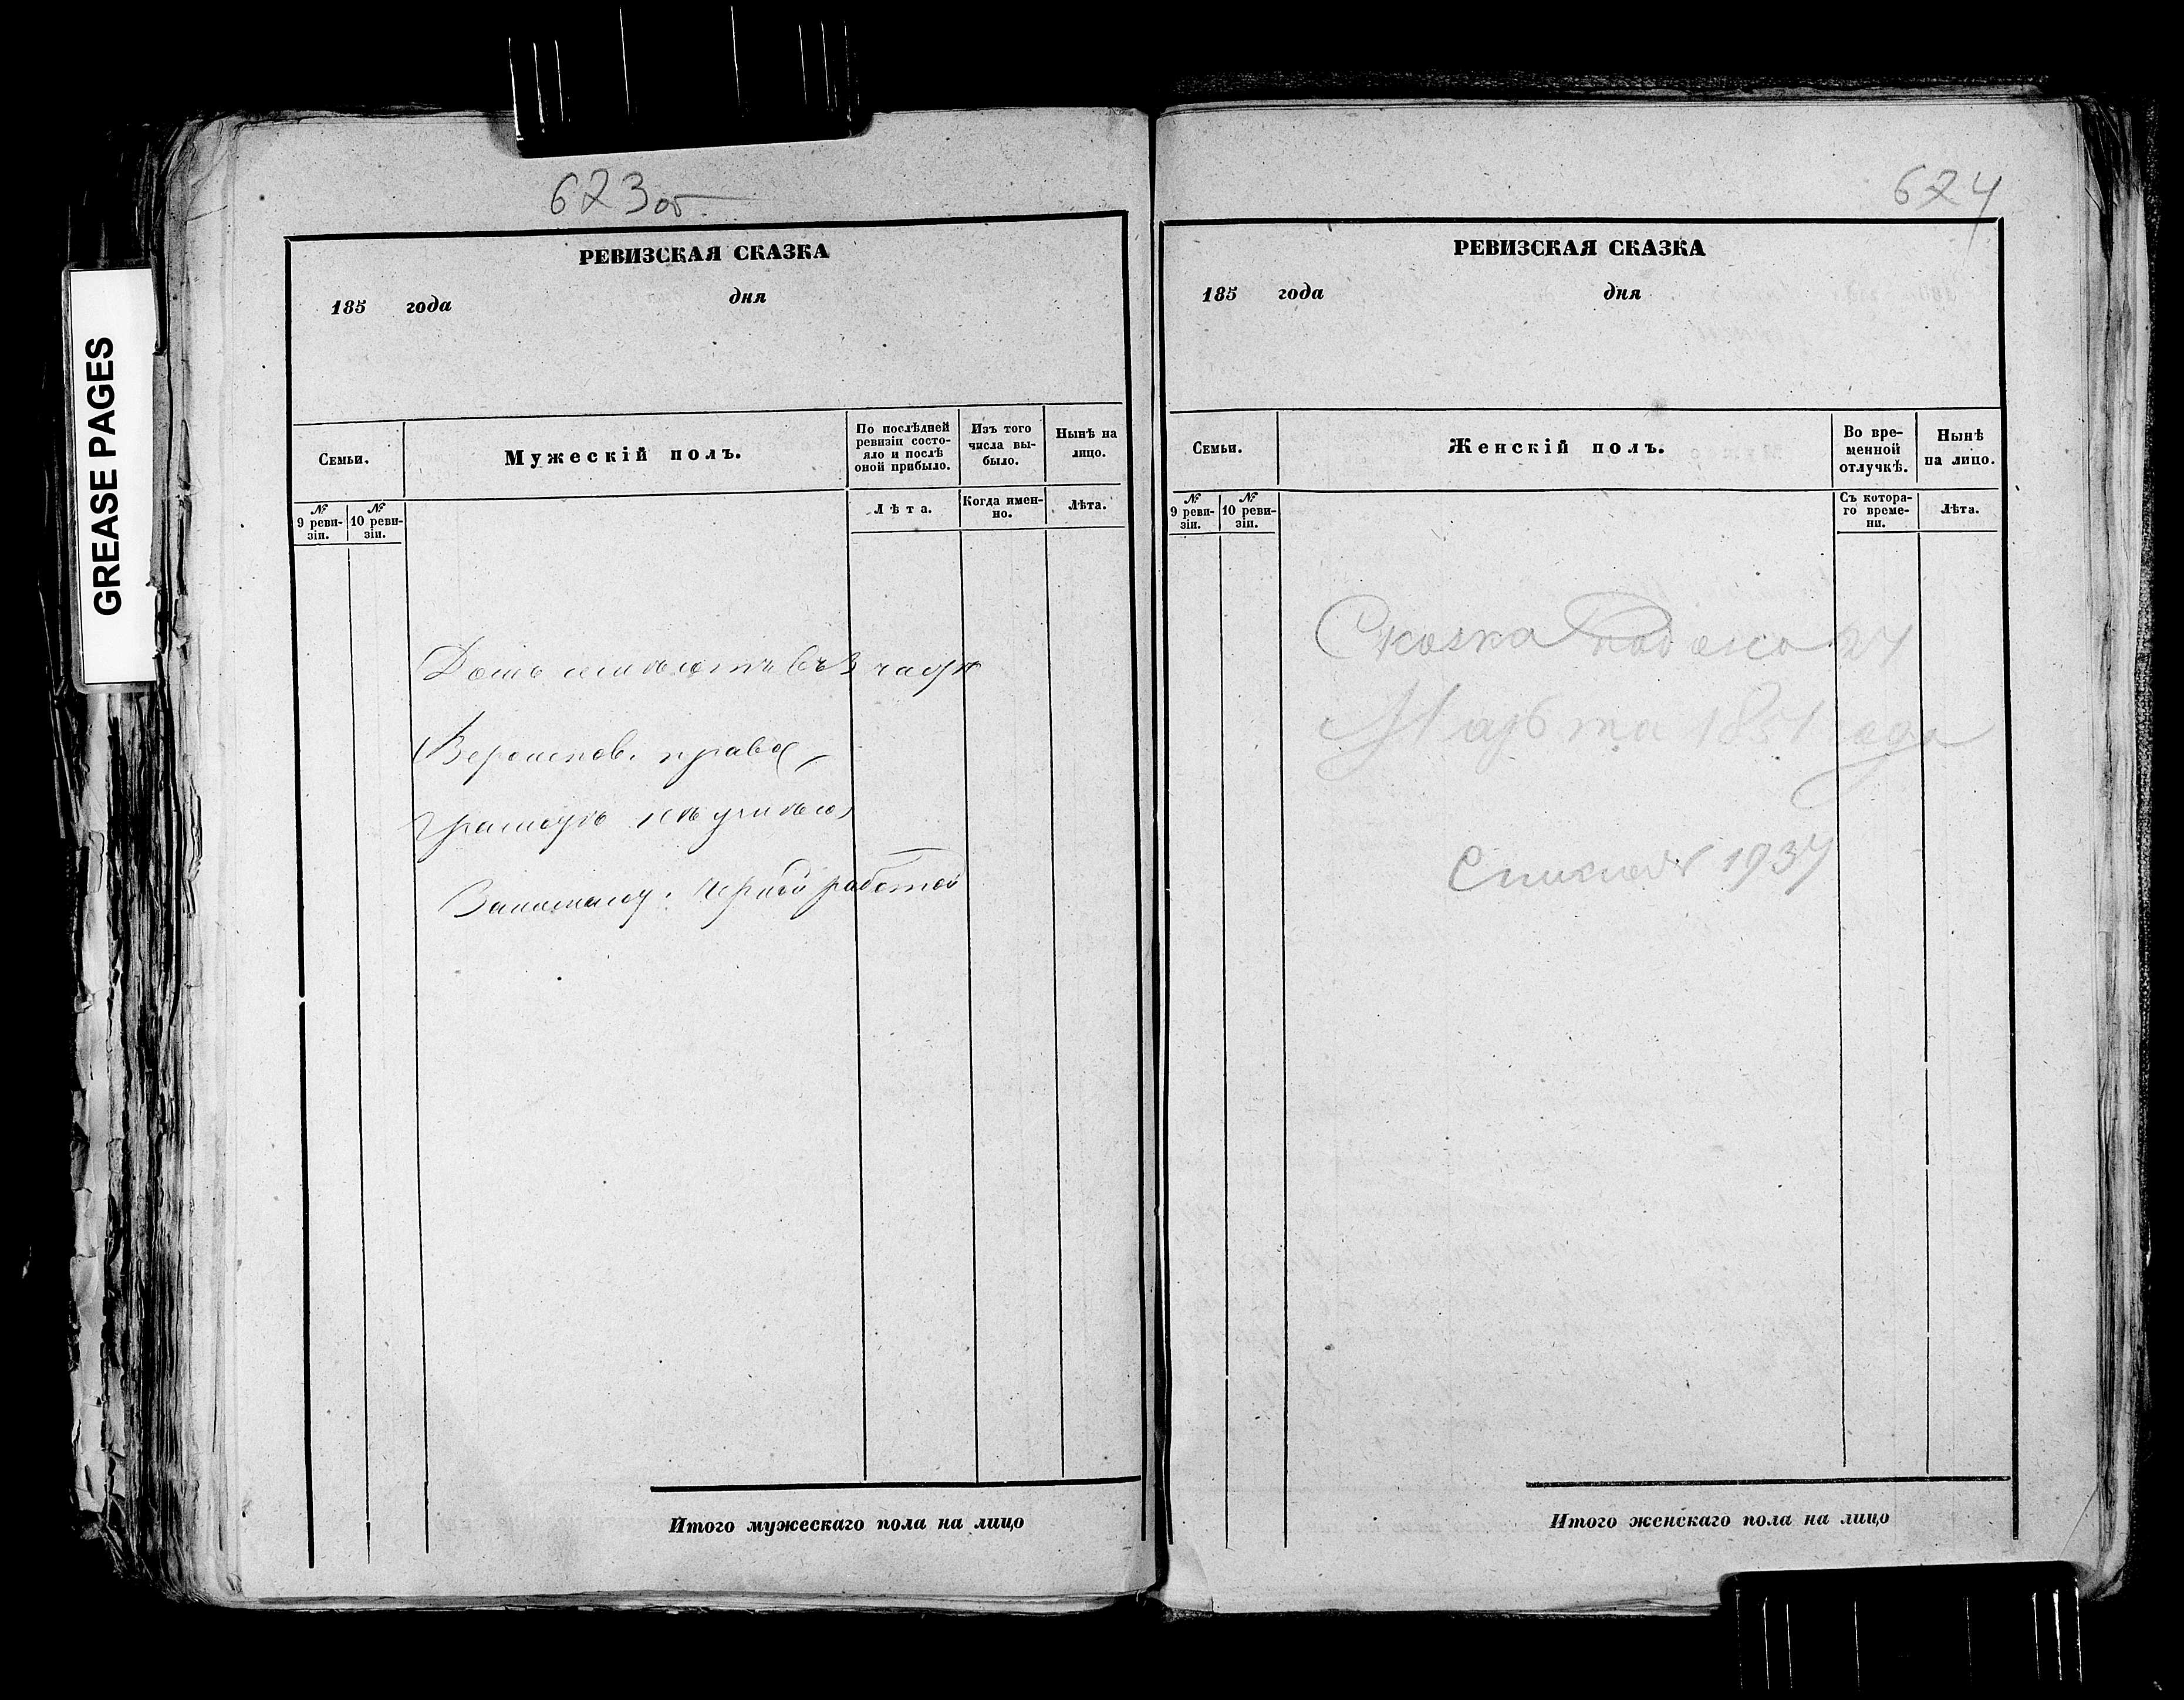 GREASE PAGES
623об
РЕВИЗСКАЯ СКАЗКА
185 года дня
Семьи.
Мужескій полъ.
По послѣдней ревизіи состояло и послѣ оной прибыло.
Изъ того числа выбыло.
Нынѣ на лицо.
№ 9 ревизіи.
№ 10 ревизіи.
Лѣта.
Когда именно.
Лѣта.
Домъ имѣетъ въ 3 части
Вероиспов. правос
Грамотѣ не учился
Занимаюсь черной работой
Итого мужескаго пола на лицо
624
РЕВИЗСКАЯ СКАЗКА
185 года дня
Семьи.
Женскій полъ.
Во временной отлучкѣ.
Нынѣ на лицо.
№ 9 ревизіи.
№ 10 ревизіи.
Съ котораго времени.
Лѣта.
Сказка Подана 24
Марта 1851 года
1937
Итого женскаго пола на лицо